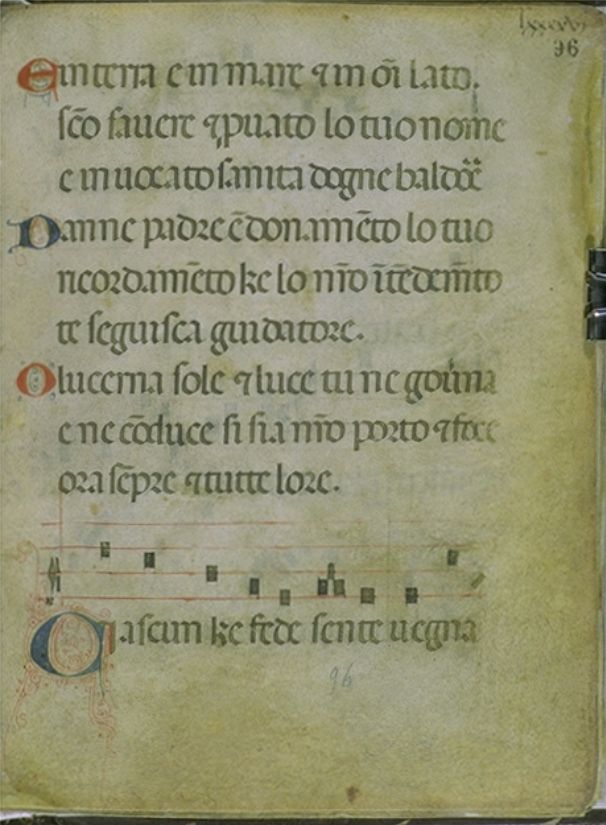 lxxxxvi
96
E in terra e in mare ⁊ in oĩ lato.
sc̃o sauere ⁊ prouato lo tuo nome
e inuocato sanita dogne baldoře
Danne padre ẽ donamẽto lo tuo
ricordamẽto ke lo nr̃o ĩtẽdemẽto
te seguisca guidatore.
O lucerna sole ⁊ luce tu ne gou̾na
e ne cõduce si sia nr̃o porto ⁊ foce
ora sẽpre ⁊ tutte lore.
Qiascun ke fede sente uegna
96